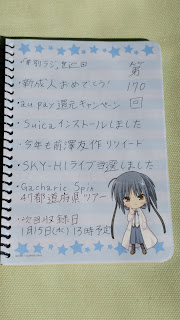 ・新成人おめでとう!
・au pay還元キャンペーン
・Suicaインストールしました
・今年も前澤友作リツイート
・SKY-HIライブ当選しました
・Gacharic Spin
47都道府県ツアー
・次回収録日
1月15日(水)13時予定
第
170
回